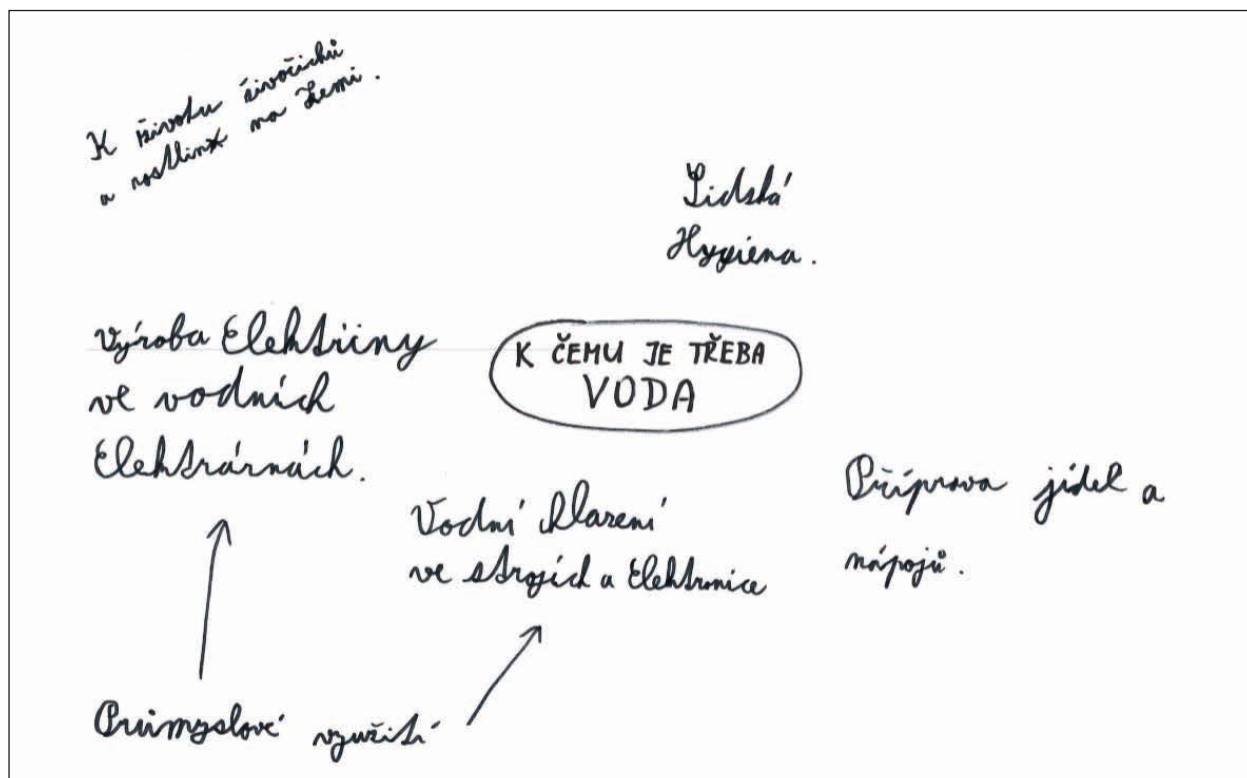 K životu živočichů
a rostlin na Zemi.
Lidská
Hygiena.
Výroba Elektřiny
ve vodních
Elektrárnách.
K ČEMU JE TŘEBA
VODA
Vodní chlazení
ve strojích a Elektronice
Příprava jídel a
nápojů.
Průmyslové využití